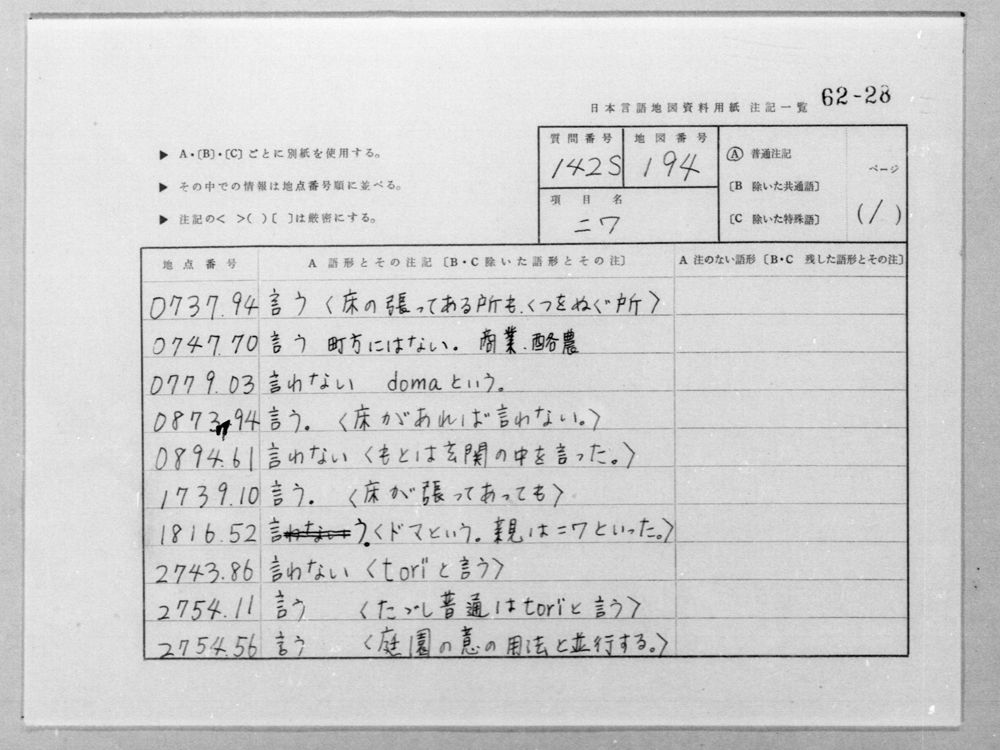 62-28
日本言語地図資料用紙 注記一覧
▶ A・〔B〕・〔C〕ごとに別紙を使用する。
▶ その中での情報は地点番号順に並べる。
▶ 注記の< >( )〔 〕は厳密にする。
質問番号 142S
地図番号 194
項目名 ニワ
Ⓐ 普通注記
〔B 除いた共通語〕
〔C 除いた特殊語〕
ページ
(1)
地点番号 A 語形とその注記〔B・C 除いた語形とその注〕 A 注のない語形〔B・C 残した語形とその注〕
0737.94 言う〈床の張ってある所も、くつをぬぐ所〉
0747.70 言う 町方にはない。 商業、酪農
0779.03 言わない domaという。
0873.94 言う。〈床があれば言わない。〉
0894.61 言わない〈もとは玄関の中を言った。〉
1739.10 言う。〈床が張ってあっても〉
1816.52 言われないう。〈ドマという。親はニワといった。〉
2743.86 言わない〈toriと言う〉
2754.11 言う 〈ただし普通はtoriと言う〉
2754.56 言う 〈庭園の意の用法と並行する。〉